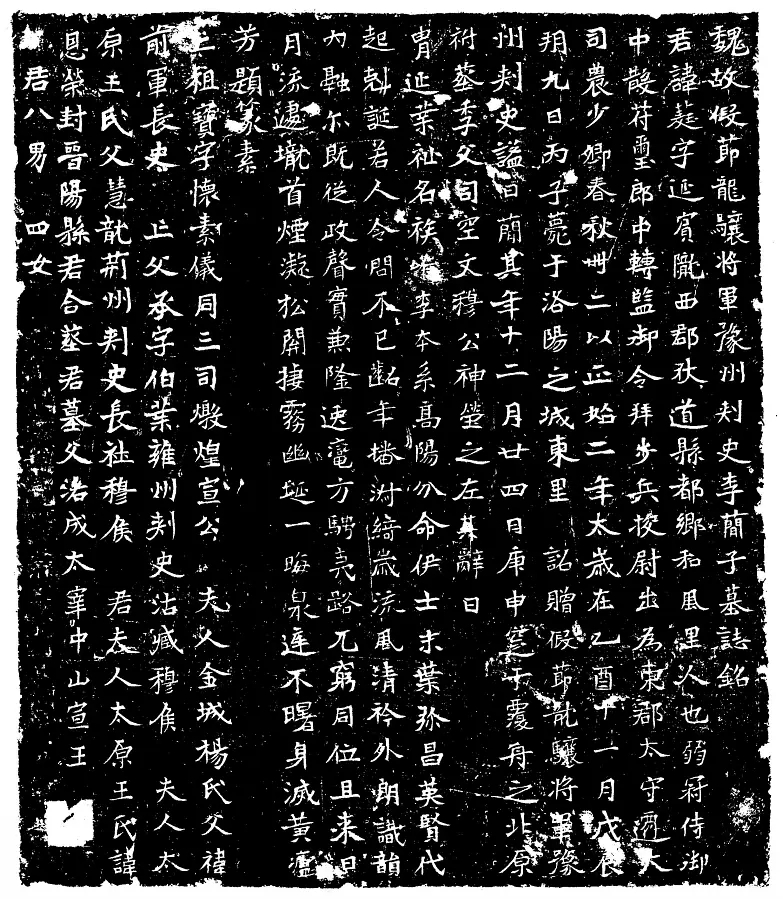 魏故假節龍驤將軍豫州刾史李簡子墓誌銘
君諱蕤字延賓隴西郡狄道縣都鄉和風里人也弱冠侍御
中散苻璽郎中轉監御令拜步兵挍尉出為東郡太守遷大
司農少卿春秋卌二以正始二年太歲在乙酉十一月戊辰
朔九日丙子薨于洛陽之城東里 詔贈假節龍驤將軍豫
州刾史謚曰簡其年十二月廿四日庚申窆于覆舟之北原
祔葬季父司空文穆公神塋之左其辭曰
胄延業祉名族 李本系高陽分命伊士末葉弥昌英賢代
起剋誕若人令問不已齠年播 綺歲流風清衿外朗識韻
內融尒既從政聲實兼隆迷 方騁夷路兀窮同位且来日
月流遽壠首煙凝松開捿霧幽埏一晦泉逵不曙身滅黃壚
芳題篆素
亡祖寶字懷素儀同三司燉煌宣公 夫人金城楊氏父禕
前軍長史 亡父承字伯業雍州刾史沽臧穆侯 夫人太
原王氏父慧龍荊州刾史長社穆侯 君夫人太原王氏諱
恩榮封晉陽縣君合葬君墓父洛成太宰中山宣王
君八男 四女